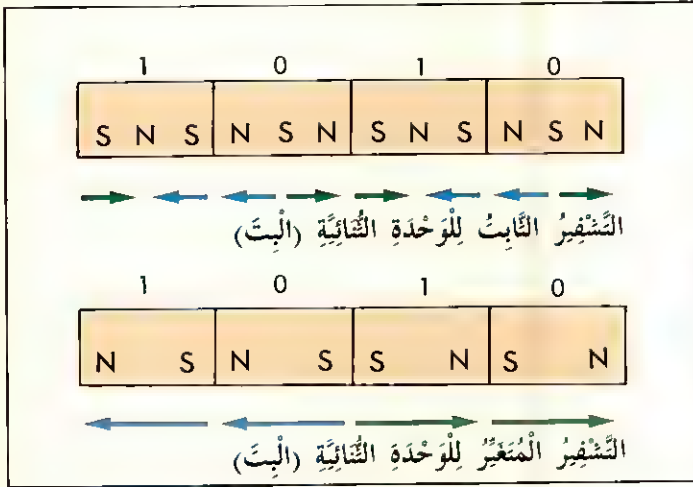 1 0 1 0
S N S N S N S N S N S N
التَّشْفِيرُ الثَّابِتُ لِلْوَحْدَةِ الثُّنَائِيَّةِ (الْبِتَ)
1 0 1 0
N S N S S N S N
التَّشْفِيرُ الْمُتَغَيِّرُ لِلْوَحْدَةِ الثُّنَائِيَّةِ (الْبِتَ)